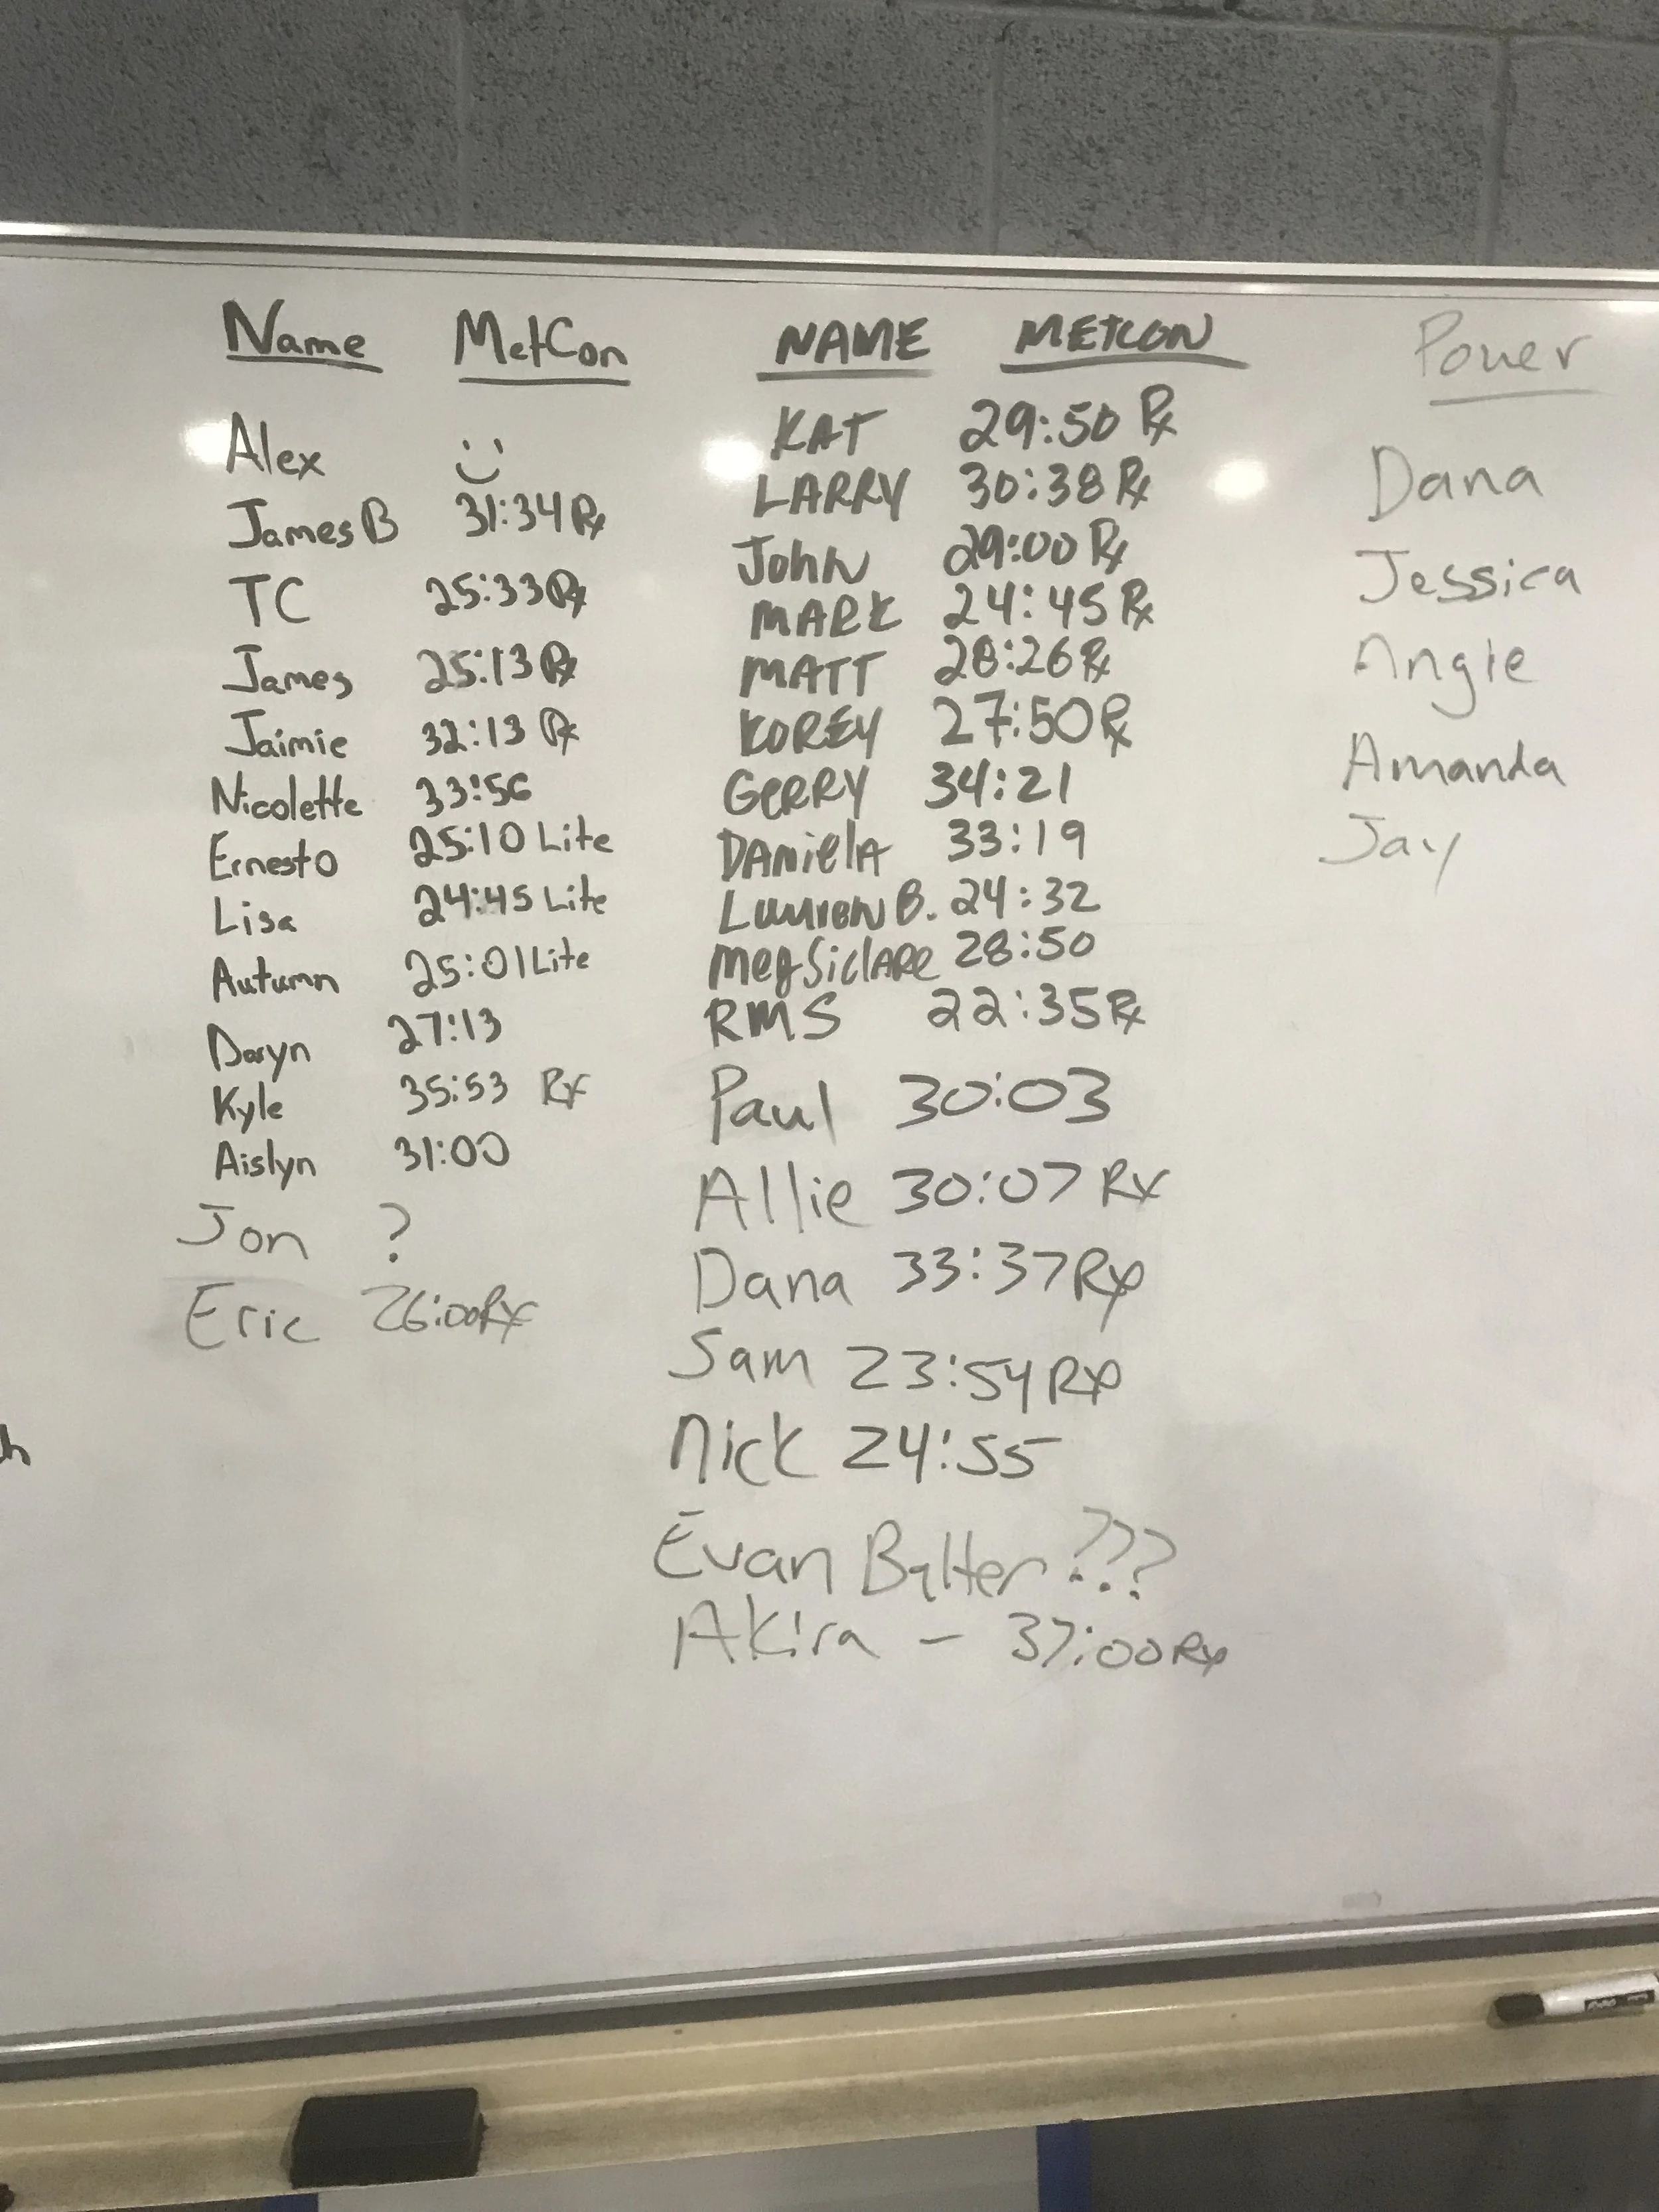 Name MetCon
Alex
James B 31:34 Rx
TC 25:33 Rx
James 25:13 Rx
Jaimie 32:13 Rx
Nicolette 33:56
Ernesto 25:10 Lite
Lisa 24:45 Lite
Autumn 25:01 Lite
Daryn 27:13
Kyle 35:53 Rx
Aislyn 31:00
Jon ?
Eric 26:00 Rx
NAME METCON
KAT 29:50 Rx
LARRY 30:38 Rx
JOHN 29:00 Rx
MARK 24:45 Rx
MATT 28:26 Rx
KOREY 27:50 Rx
GERRY 34:21
DANIELA 33:19
B. 24:32
Meg SiclARe 28:50
RMS 22:35 Rx
Paul 30:03
Allie 30:07 Rx
Dana 33:37 Rx
Sam 23:54 Rx
Nick 24:55
Evan Balter ???
Akira - 37:00 Rx
Power
Dana
Jessica
Angie
Amanda
Jay